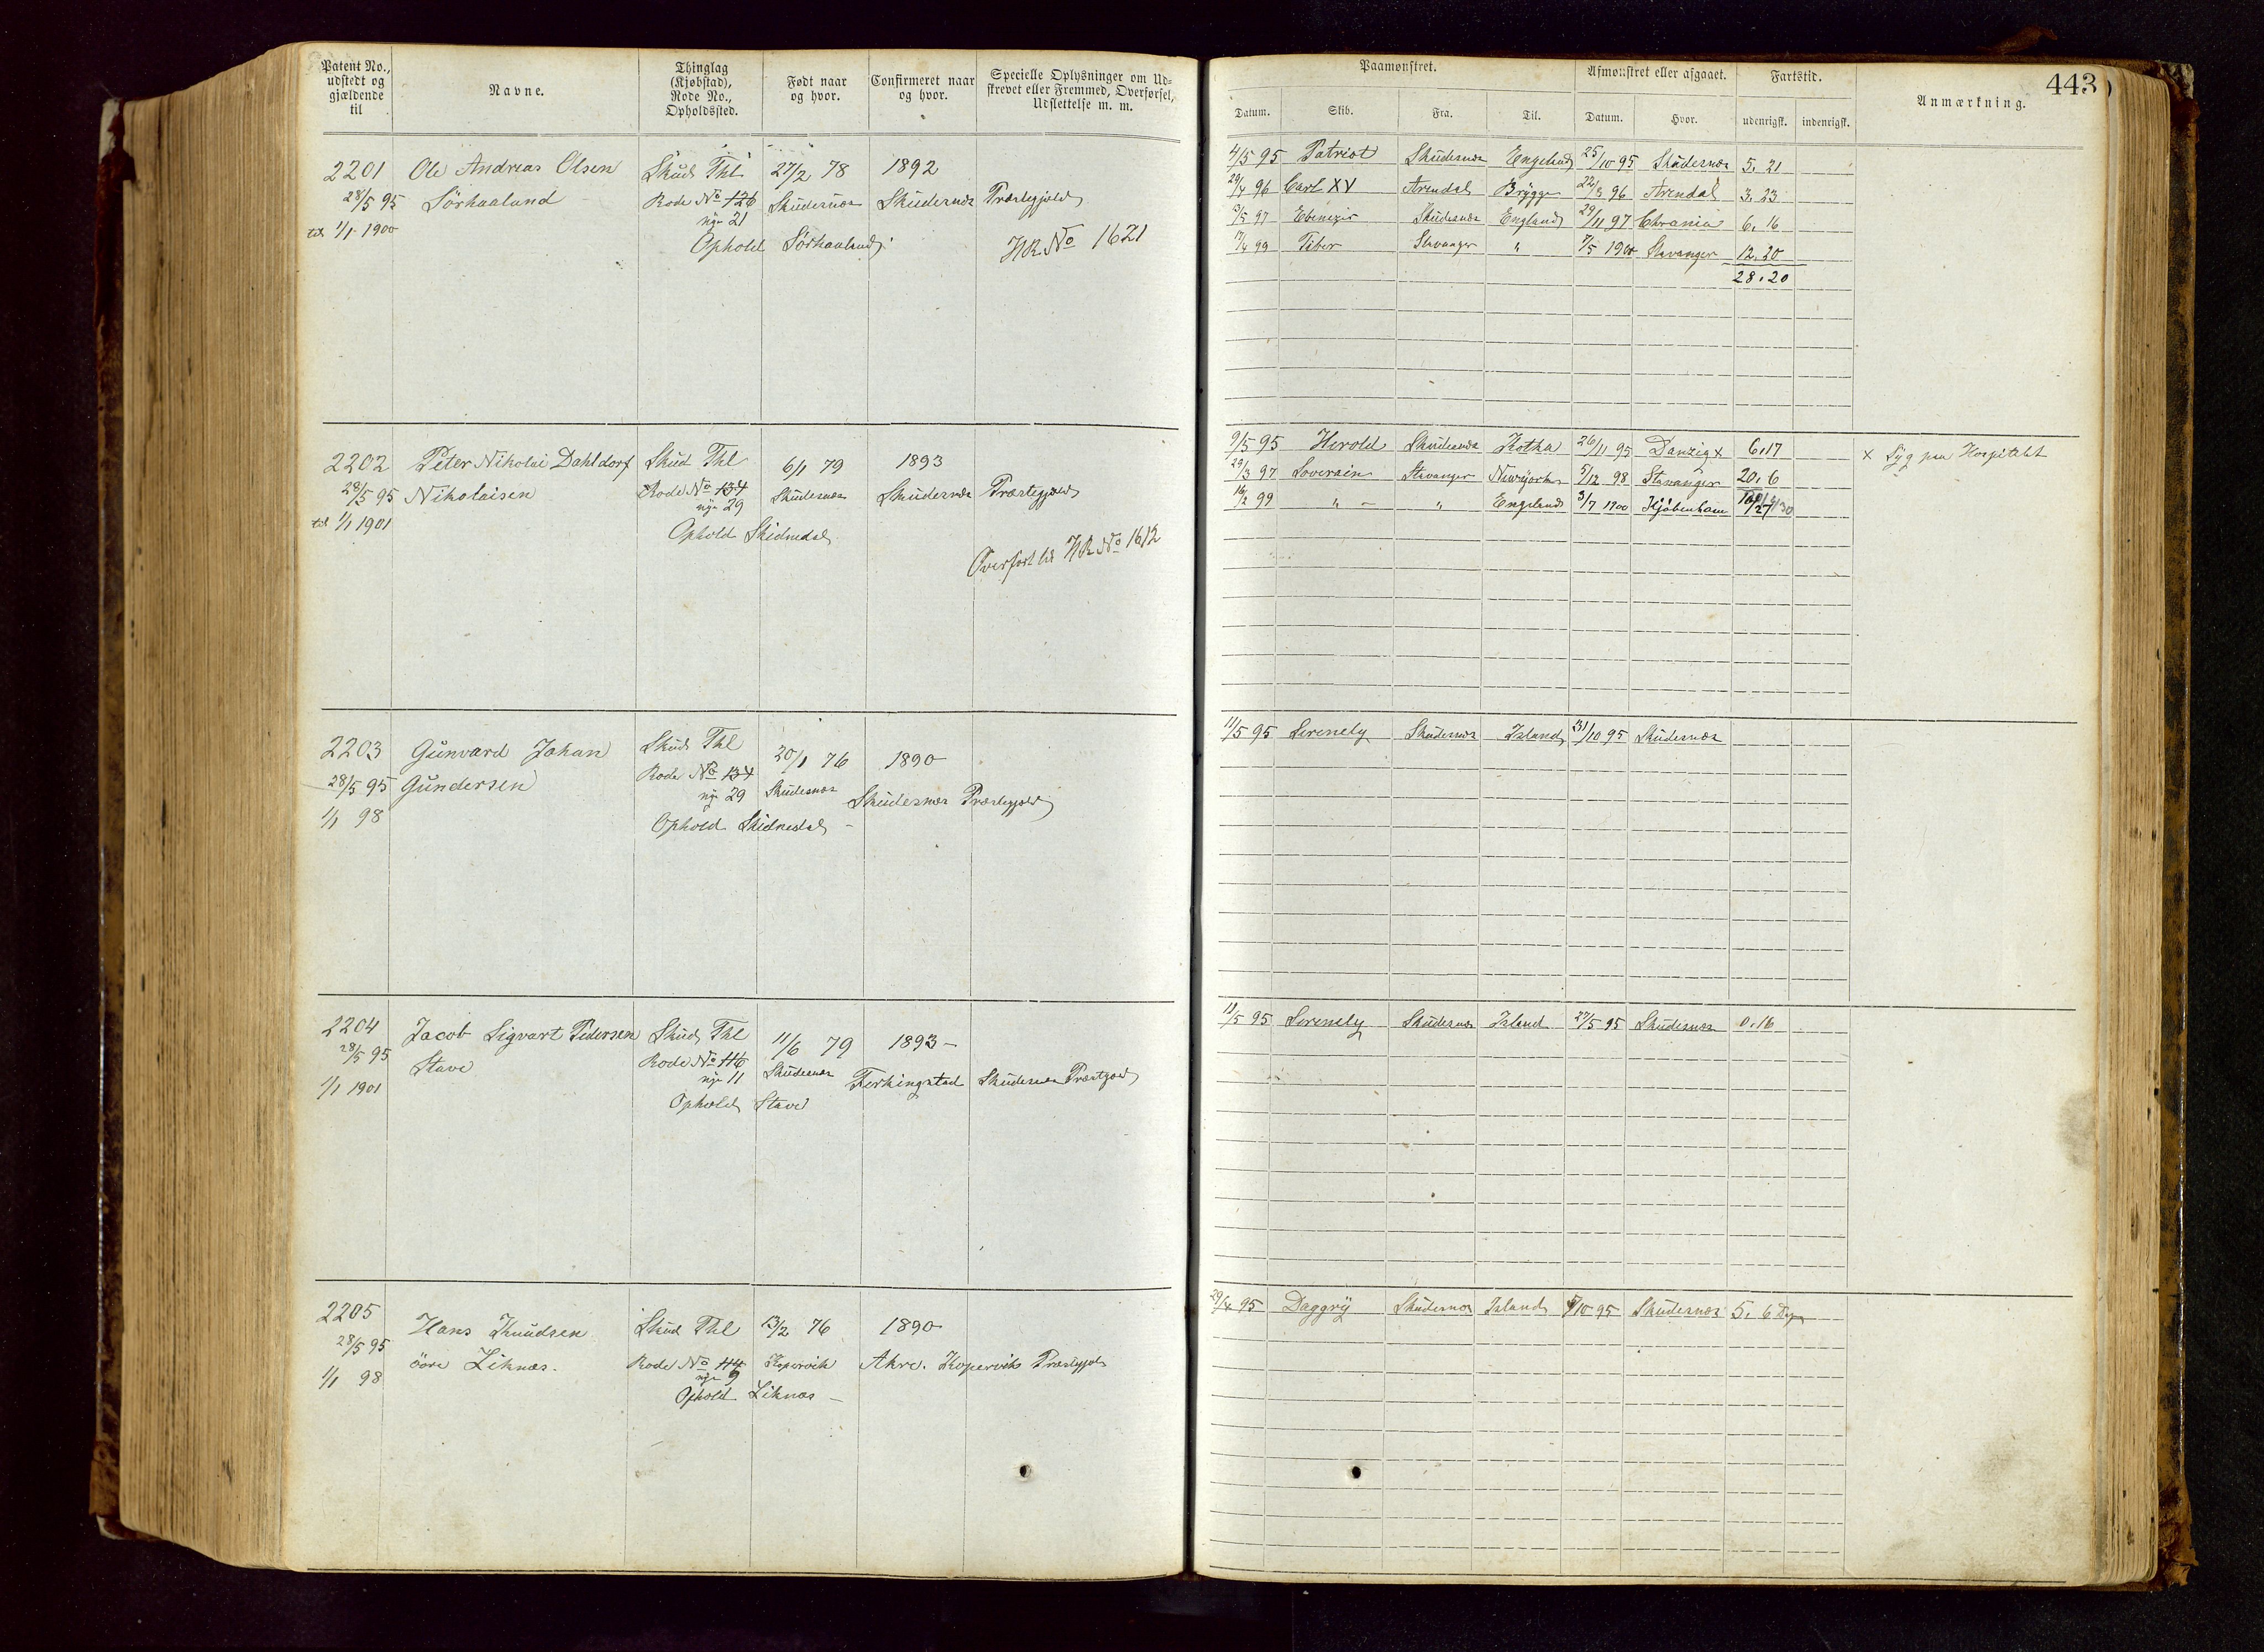 Patent No.,
udstedt og
gjældende
til
Navne.
Thinglag
(Kjøbstad),
Rode No.,
Opholdssted.
Født naar
og hvor.
Confirmeret naar
og hvor.
Specielle Oplysninger om Ud-
skrevet eller Fremmed, Overførsel,
Udslettelse m. m.
2201 Ole Andreas Olsen Skud Thl 27/2 78 1892
28/5 95 Sörhaaland Rode No 126 Skudesnæs Skudesnæs Præstegjeld
nye 21
til 1/1 1900
Ophold Sörhaaland
HR. No 1621
2202 Peter Nikolai Dahldorf Skud Thl 6/1 79 1893
28/5 95 Nikolaisen Rode No 134 Skudesnæs Skudesnæs Præstegjeld
nye 29
til 1/1 1901
Ophold Skidnedal
Overført til HR No 1612
2203 Gunvard Johan Skud Thl 20/1 76 1890
28/5 95 Gundersen Rode No 134 Skudesnæs Skudesnæs Præstegjeld
nye 29
1/1 98
Ophold Skidnedal
2204 Jacob Sigvart Pedersen Skud Thl 11/6 79 1893
28/5 95 Stave Rode No 116 Skudesnæs Ferkingstad Skudesnæs Præstgjeld
nye 11
1/1 1901
Ophold Stave
2205 Hans Knudsen Skud Thl 13/2 76 1890
28/5 95 övre Liknæs. Rode No 114 Kopervik Akre. Kopervik Præstegjeld
nye 9
1/1 98
Ophold Liknæs
443
Paamønstret.
Afmønstret eller afgaaet.
Fartstid.
Anmærkning.
Datum. Skib. Fra. Til. Datum. Hvor. udenrigsk. indenrigsk.
4/5 95 Patriot Skudesnæs Engeland 25/10 95 Skudesnæs 5. 21
29/4 96 Carl XV Arendal Brygge 22/8 96 Arendal 3. 23
13/5 97 Ebenezer Skudesnæs England 29/11 97 Chrania 6. 16
17/4 99 Tiber Stavanger " 7/5 1900 Stavanger 12. 20
28. 20
9/5 95 Herold Skudesnæs Kotka 26/11 95 Danzig x 6. 17 x Syg paa Hospitalet
29/3 97 Soverain Stavanger Newyork 5/12 98 Stavanger 20. 6
16/2 99 " " Engeland 3/7 1900 Kjöbenhavn
11/5 95 Serenely Skudesnæs Island 31/10 95 Skudesnæs
11/5 95 Serenely Skudesnæs Island 27/5 95 Skudesnæs 0. 16
29/4 95 Daggry Skudesnæs Island 5/10 95 Skudesnæs 5. 6 Dage